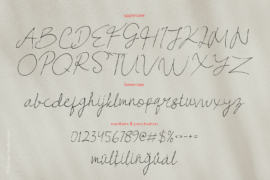 uppercase
ABCDEFGHIJKLMN
OPQRSTUVWXYZ
lowercase
abcdefghijklmnopqrstuvwxyz
numbers & punctuation
0123456789@#$%<>-+=
multilingual